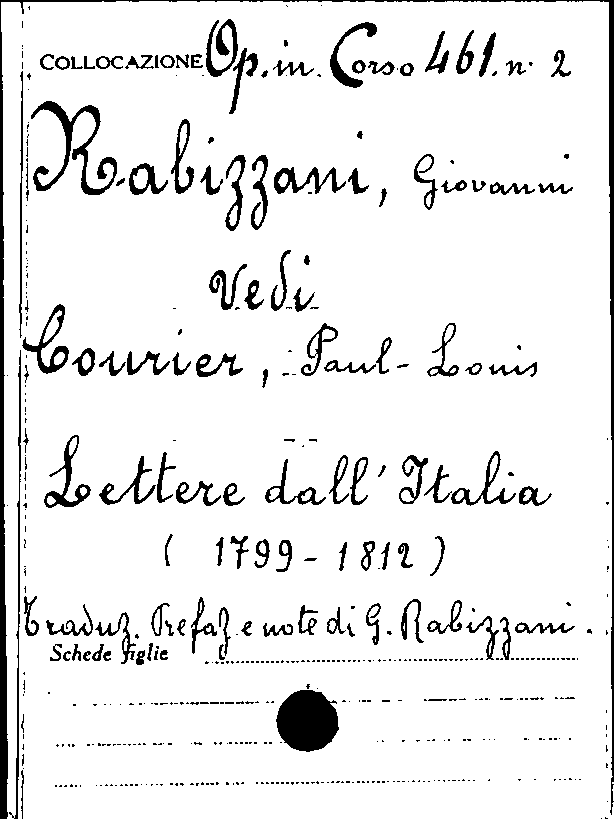 COLLOCAZIONE Op. in Corso 461. n. 2
Rabizzani, Giovanni
Vedi
Courier, Paul-Louis
Lettere dall'Italia
( 1799-1812 )
Traduz. Prefaz e note di G. Rabizzani.
Schede figlie